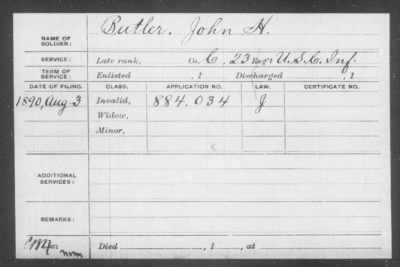 NAME OF SOLDIER: Butler, John H.
SERVICE: Late rank, Co. C, 23 Reg't U.S.C. Inf.
TERM OF SERVICE: Enlisted , 1 Discharged , 1
DATE OF FILING. CLASS. APPLICATION NO. LAW. CERTIFICATE NO.
1890, Aug. 3 Invalid, 884.034 J
Widow,
Minor,
ADDITIONAL SERVICES:
REMARKS:
Died , 1 , at